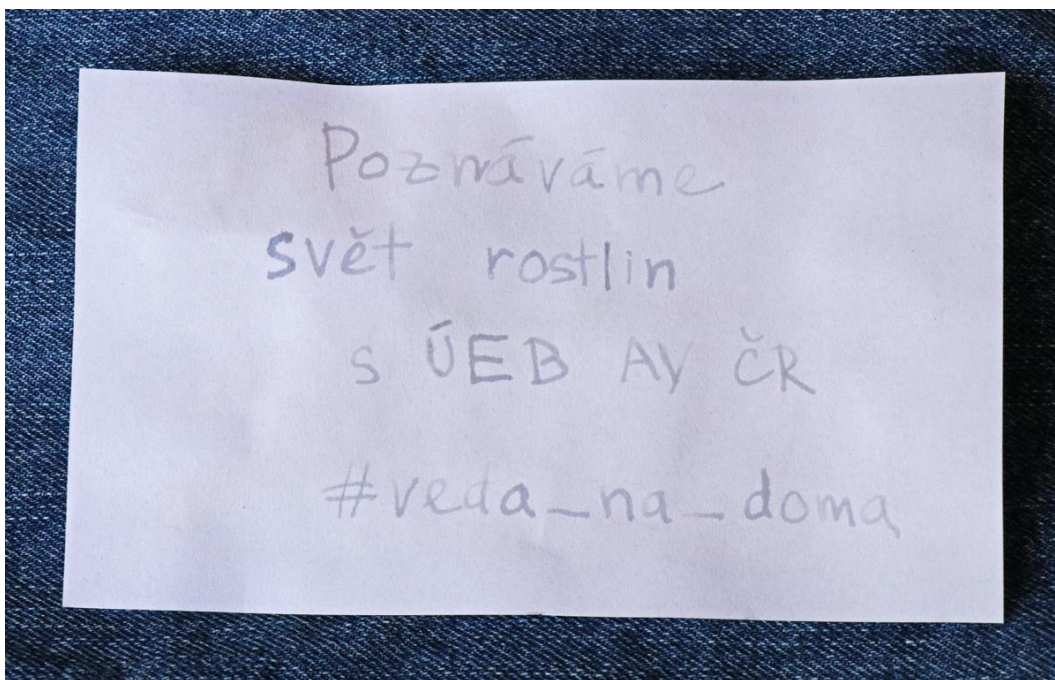 Poznáváme
svět rostlin
s ÚEB AV ČR
#veda_na_doma